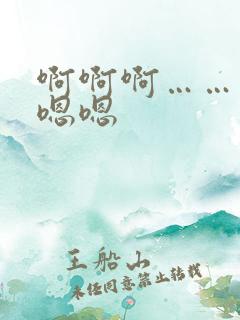 啊啊啊……
嗯嗯
王船山
未经同意禁止转载